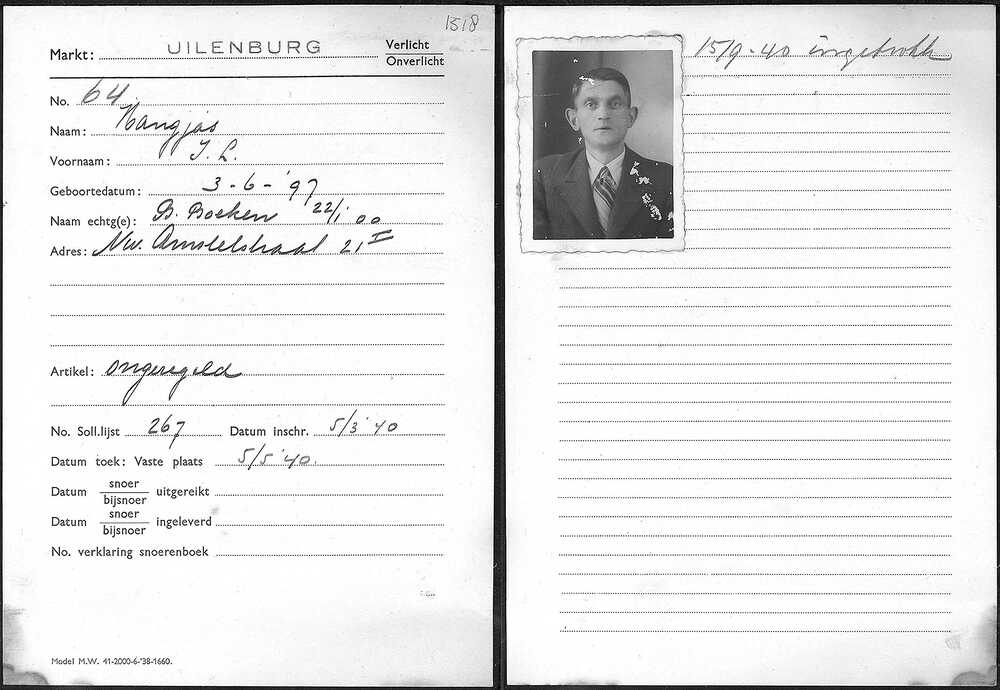 1518
Markt: UILENBURG Verlicht
Onverlicht
No. 64
Naam: Kangjas
Voornaam: I. L.
Geboortedatum: 3-6-'97
Naam echtg(e): B. Boeken 22/1 00
Adres: Nw. Amstelstraat 21 I
Artikel: ongeregeld
No. Soll.lijst 267 Datum inschr. 5/3 '40
Datum toek: Vaste plaats 5/5 '40.
Datum snoer
bijsnoer uitgereikt
Datum snoer
bijsnoer ingeleverd
No. verklaring snoerenboek
Model M.W. 41-2000-6-'38-1660.
15/9-40 ingetrokk